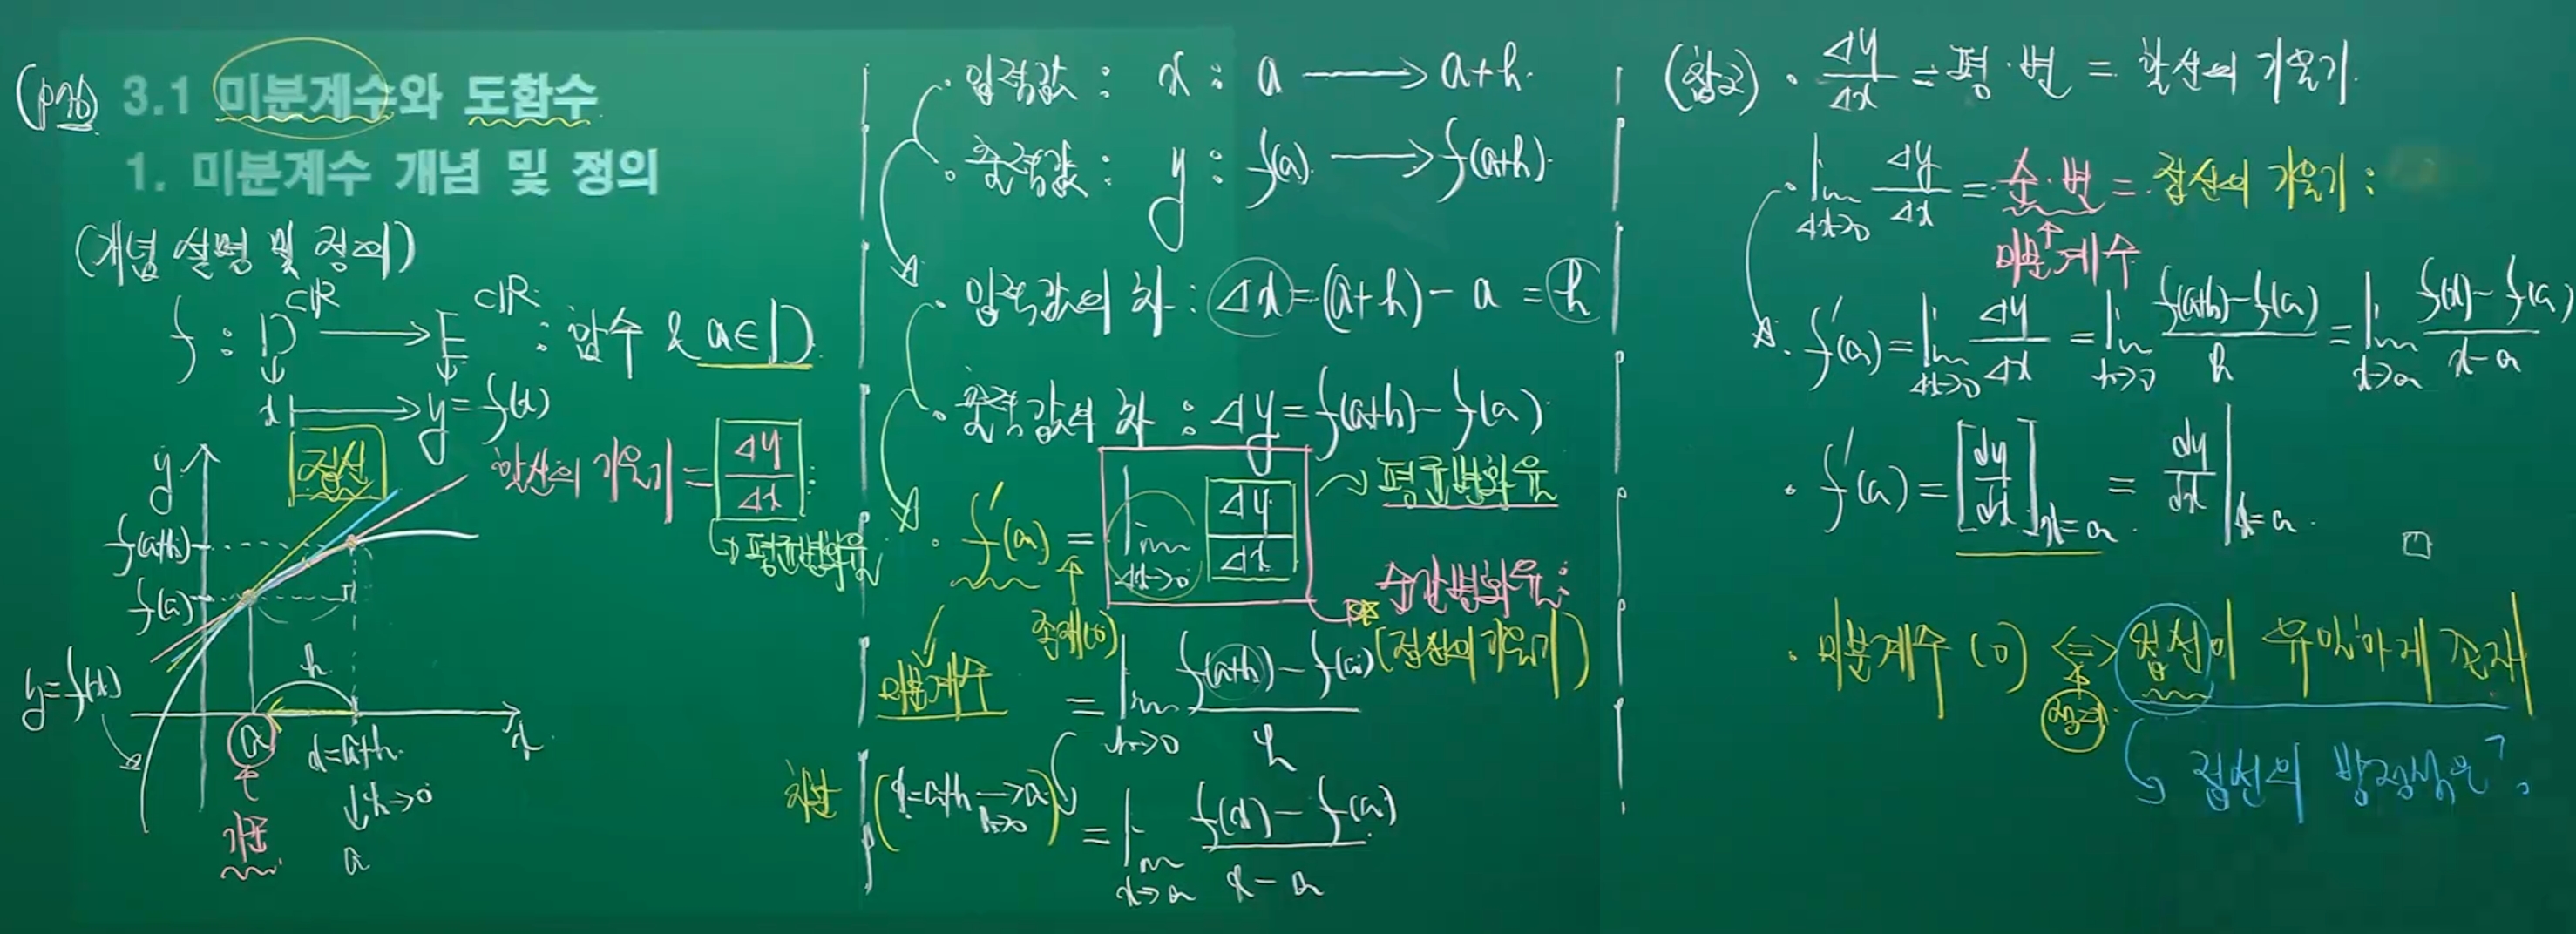 (p76) 3.1 미분계수와 도함수
1. 미분계수 개념 및 정의
(개념 설명 및 정의)
f : D ⊂ℝ → E ⊂ℝ : 함수 & a∈D
x ↦ y = f(x)
접선
할선의 기울기 = Δy/Δx :
↳ 평균변화율
y
f(a+h)
f(a)
y=f(x)
h
a
x=a+h
x
↓ h→0
기준
a
· 입력값 : x : a → a+h
· 출력값 : y : f(a) → f(a+h)
· 입력값의 차 : Δx = (a+h) - a = h
· 출력값의 차 : Δy = f(a+h) - f(a)
· f'(a) = lim_{Δx→0} Δy/Δx → 평균변화율
순간변화율 :
존재(O)
(접선의 기울기)
미분계수
= lim_{h→0} (f(a+h) - f(a))/h
치환 (x=a+h → a, h→0)
= lim_{x→a} (f(x) - f(a))/(x - a)
(참고) · Δy/Δx = 평·변 = 할선의 기울기
· lim_{Δx→0} Δy/Δx = 순·변 = 접선의 기울기 :
↑
미분계수
· f'(a) = lim_{Δx→0} Δy/Δx = lim_{h→0} (f(a+h) - f(a))/h = lim_{x→a} (f(x) - f(a))/(x - a)
· f'(a) = [dy/dx]_{x=a} = dy/dx |_{x=a}
□
· 미분계수 (O) ⟺ 접선이 유일하게 존재
정의
↳ 접선의 방정식은?